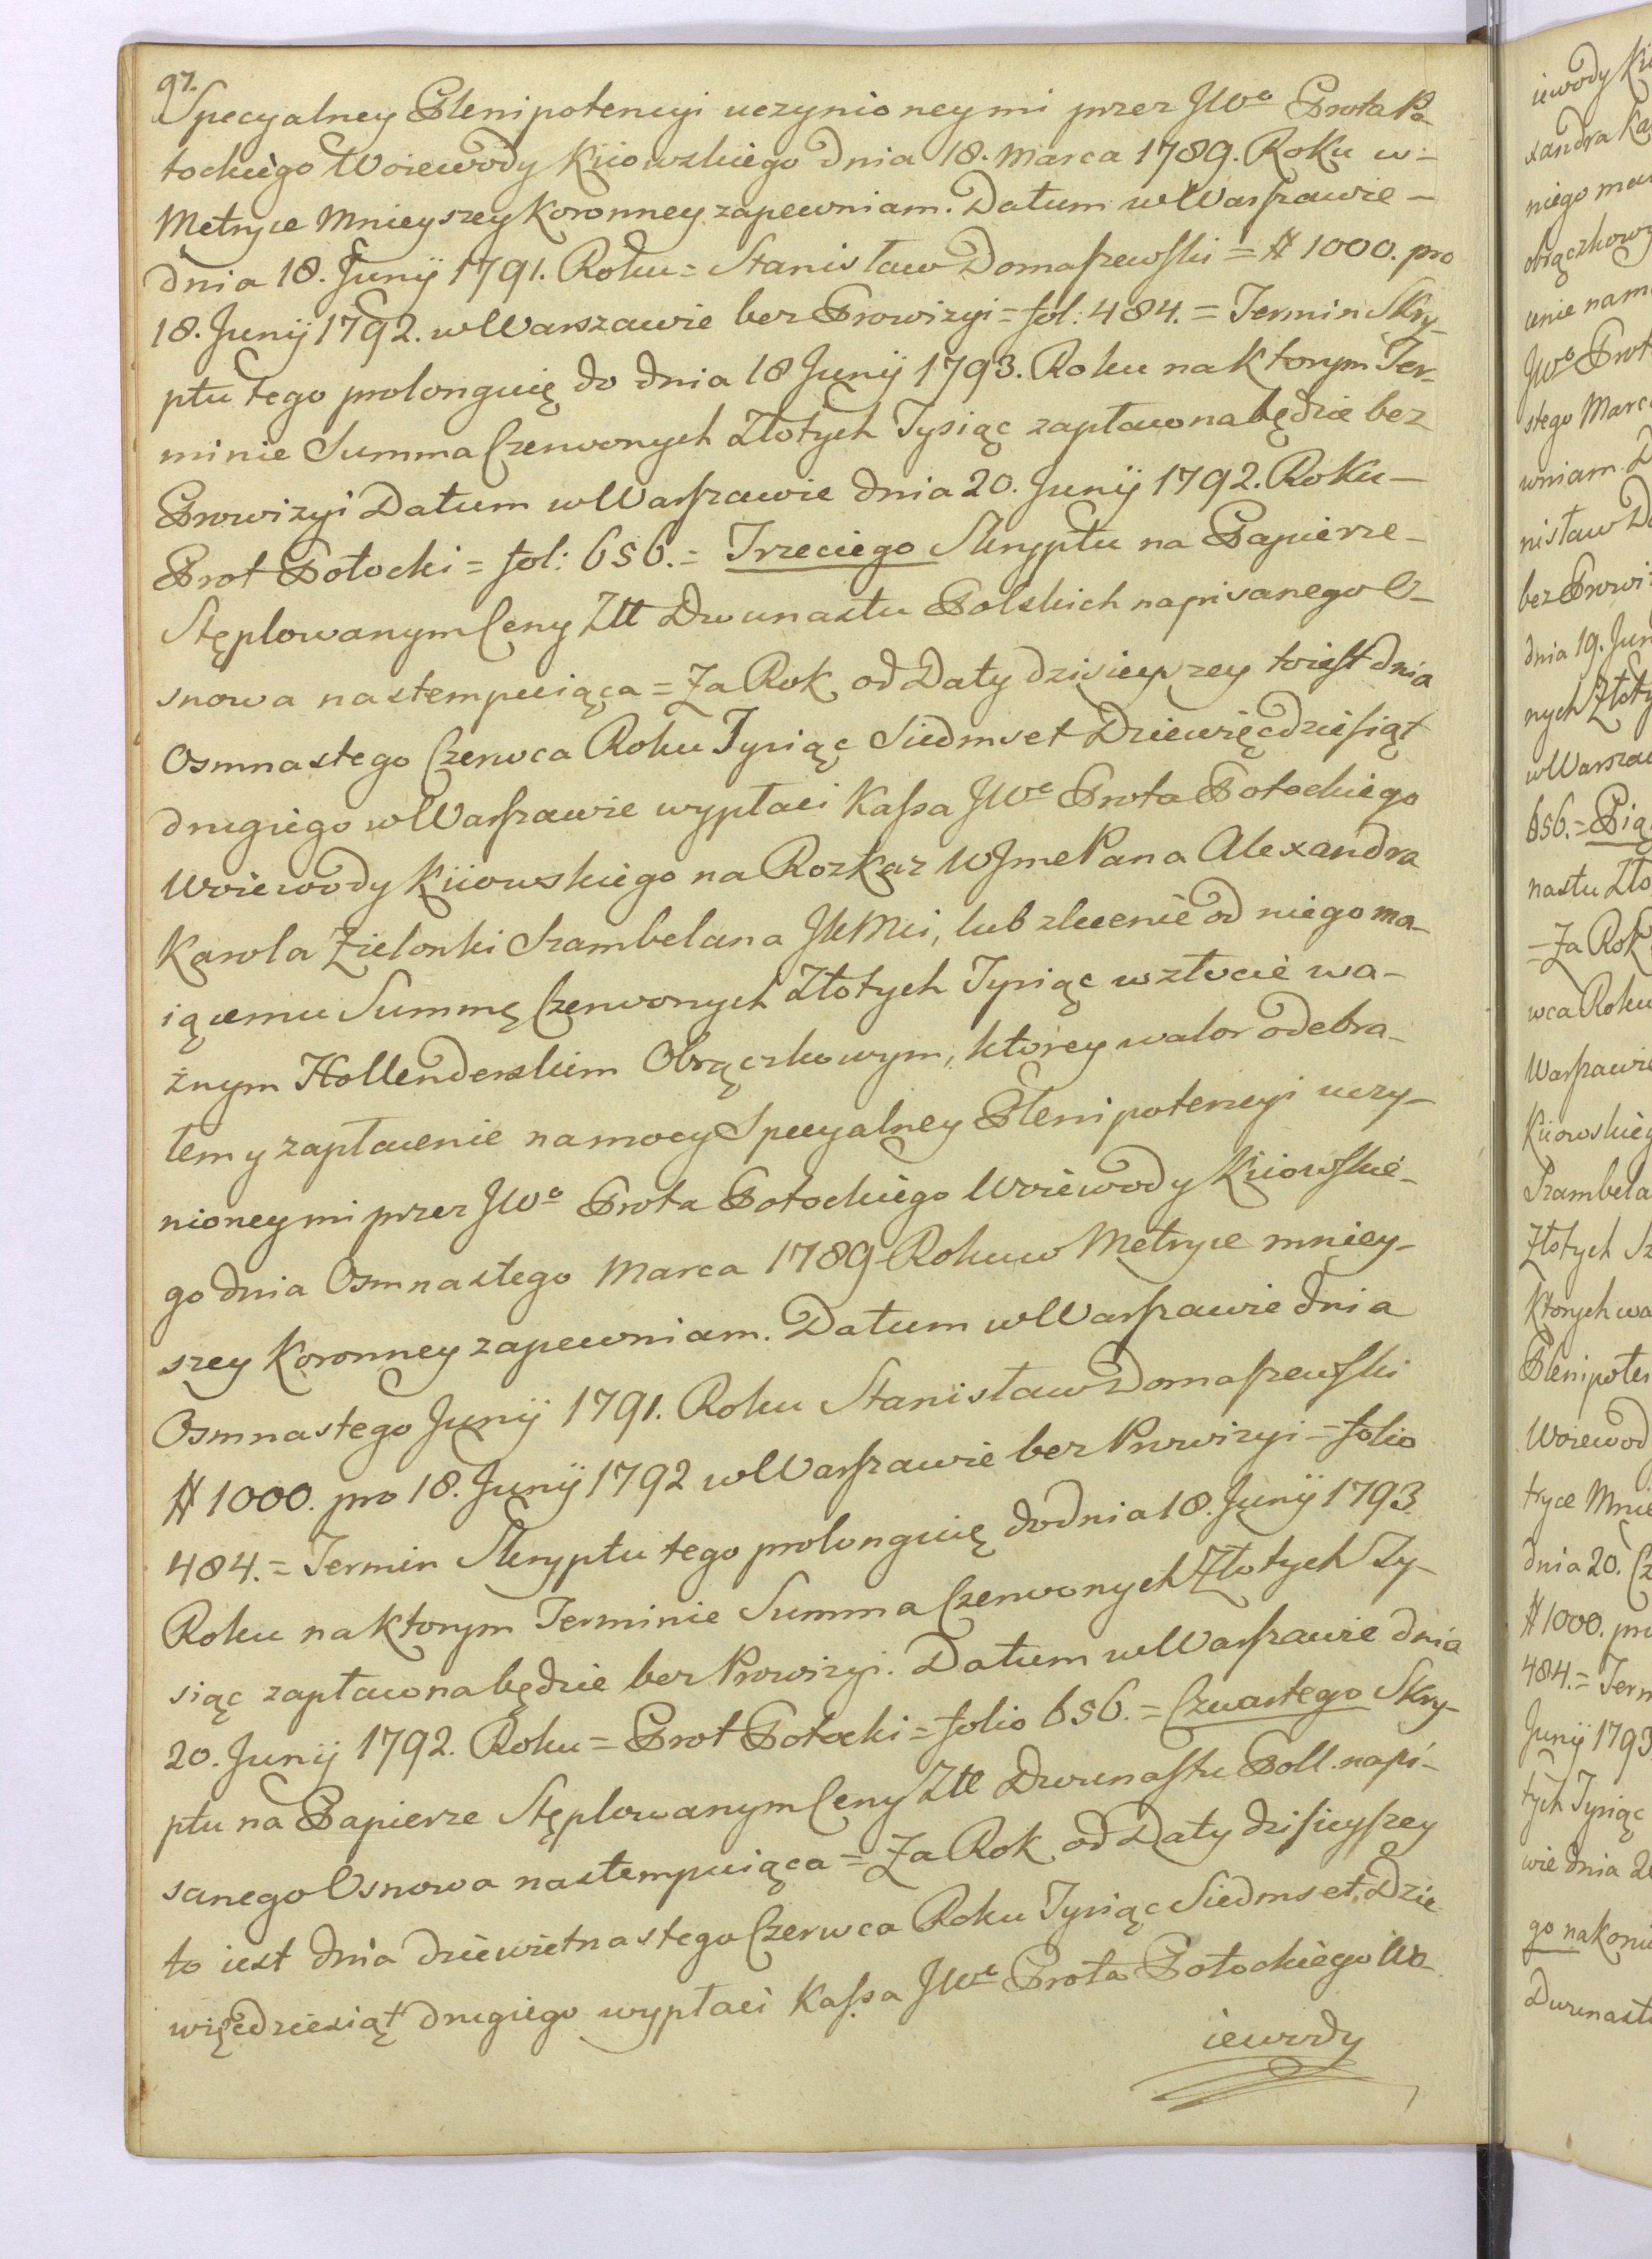 97.
Specyalney Plenipotencyi uczynioney mi przez JWo Prota Po-
tockiego Woiewody Kiiowskiego dnia 18. Marca 1789. Roku w-
Metryce Mnieyszey Koronney zapewniam. Datum w Warszawie -
dnia 18. Junij 1791. Roku = Stanisław Domaszewski = # 1000. pro
18. Junij 1792. w Warszawie bez Prowizyi = fol: 484. = Termin Skry-
ptu tego prolonguię do dnia 18 Junij 1793. Roku na ktorym Ter-
minie Summa Czerwonych Złotych Tysiąc zapłacona będzie bez
Prowizyi Datum w Warszawie dnia 20. Junij 1792. Roku -
Prot Potocki = fol: 656. = Trzeciego Skryptu na Papierze -
Stęplowanym Ceny Złł Dwunastu Polskich napisanego O-
snowa nastempuiąca = Za Rok od Daty dzisieyszey to iest dnia
Osmnastego Czerwca Roku Tysiąc Siedmset Dziewięcdziesiąt
drugiego w Warszawie wypłaci Kassa JWo Prota Potockiego
Woiewody Kiiowskiego na Rozkaz WJmePana Alexandra
Karola Zielonki Szambelana JKMci, lub zlecenie od niego ma-
iącemu Summę Czerwonych Złotych Tysiąc w złocie wa-
żnym Hollenderskim Obrączkowym, ktorey walor odebra-
łem y zapłacenie na mocy Specyalney Plenipotencyi uczy-
nioney mi przez JWo Prota Potockiego Woiewody Kiiowskie-
go dnia Osmnastego Marca 1789 Roku w Metryce mniey-
szey Koronney zapewniam. Datum w Warszawie dnia
Osmnastego Junij 1791. Roku Stanisław Domaszewski
# 1000. pro 18. Junij 1792 w Warszawie bez Prowizyi = folio
484. = Termin Skryptu tego prolonguię do dnia 18. Junij 1793
Roku na ktorym Terminie Summa Czerwonych Złotych Ty-
siąc zapłacona będzie bez Prowizyi. Datum w Warszawie dnia
20. Junij 1792. Roku = Prot Potocki = folio 656. = Czwartego Skry-
ptu na Papierze Stęplowanym Ceny Złł Dwunastu Poll. napi-
sanego Osnowa nastempuiąca = Za Rok od Daty dzisieyszey
to iest dnia dziewietnastego Czerwca Roku Tysiąc Siedmset Dzie
więcdziesiąt drugiego wypłaci Kassa JWo Prota Potockiego Wo-
iewody